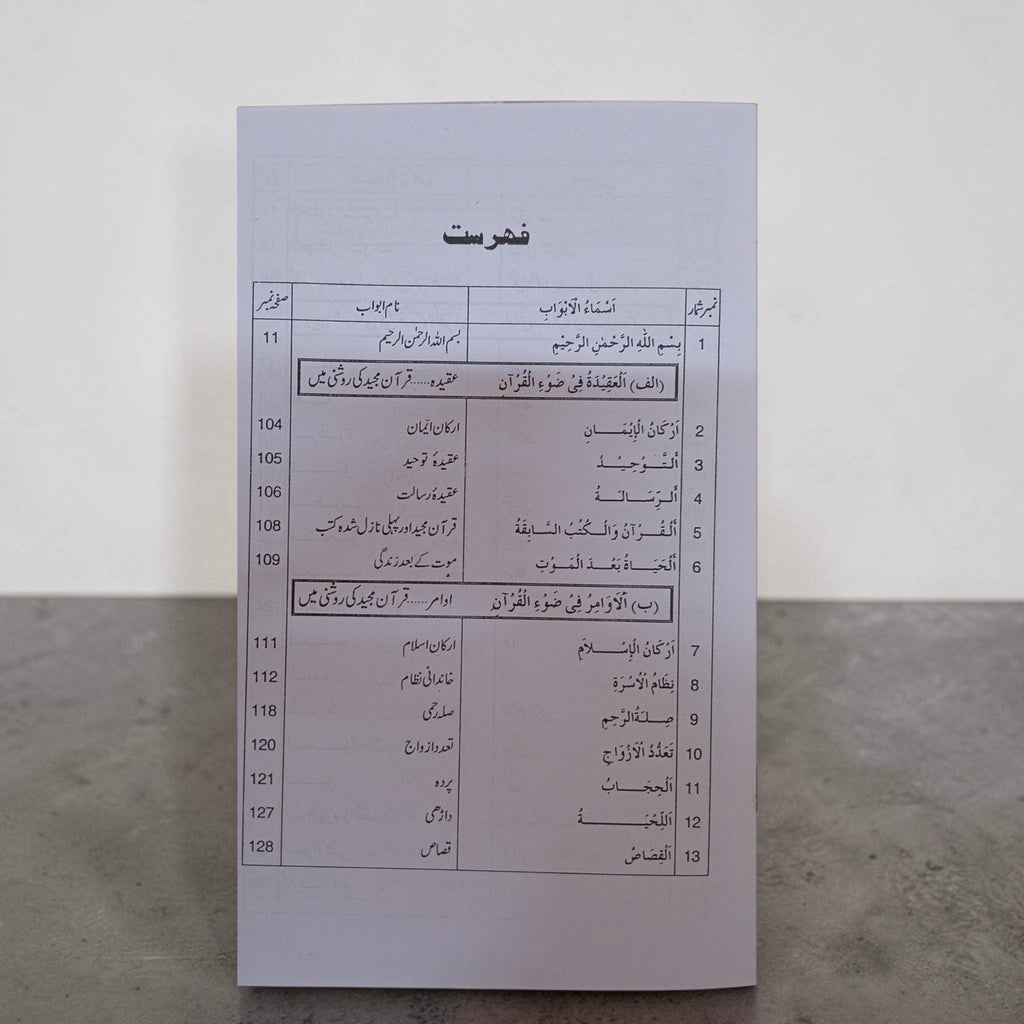 فهرست
نمبر شمار اَسْمَاءُ الْاَبْوَابِ نام ابواب صفحہ نمبر
1 بِسْمِ اللّٰهِ الرَّحْمٰنِ الرَّحِيْمِ بسم اللہ الرحمٰن الرحیم 11
(الف) اَلْعَقِيْدَةُ فِىْ ضَوْءِ الْقُرْآنِ عقیدہ......قرآن مجید کی روشنی میں
2 اَرْكَانُ الْاِيْمَـــــانِ ارکان ایمان 104
3 اَلتَّـــوْحِيْـــــدُ عقیدۂ توحید 105
4 اَلـرِّسَـــالَـــــةُ عقیدۂ رسالت 106
5 اَلْـقُــرْآنُ وَالْـكُتُبُ السَّـابِقَةُ قرآن مجید اور پہلی نازل شدہ کتب 108
6 اَلْحَيَــاةُ بَعْــدَ الْمَــوْتِ موت کے بعد زندگی 109
(ب) اَلْاَوَامِرُ فِىْ ضَوْءِ الْقُرْآنِ اوامر......قرآن مجید کی روشنی میں
7 اَرْكَانُ الْاِسْـــلَامِ ارکان اسلام 111
8 نِظَامُ الْاُسْرَةِ خاندانی نظام 112
9 صِلَـةُ الرَّحِمِ صلہ رحمی 118
10 تَعَدُّدُ الْاَزْوَاجِ تعدد ازواج 120
11 اَلْحِجَـــابُ پردہ 121
12 اَللِّحْيَـــــةُ داڑھی 127
13 اَلْقِصَاصُ قصاص 128